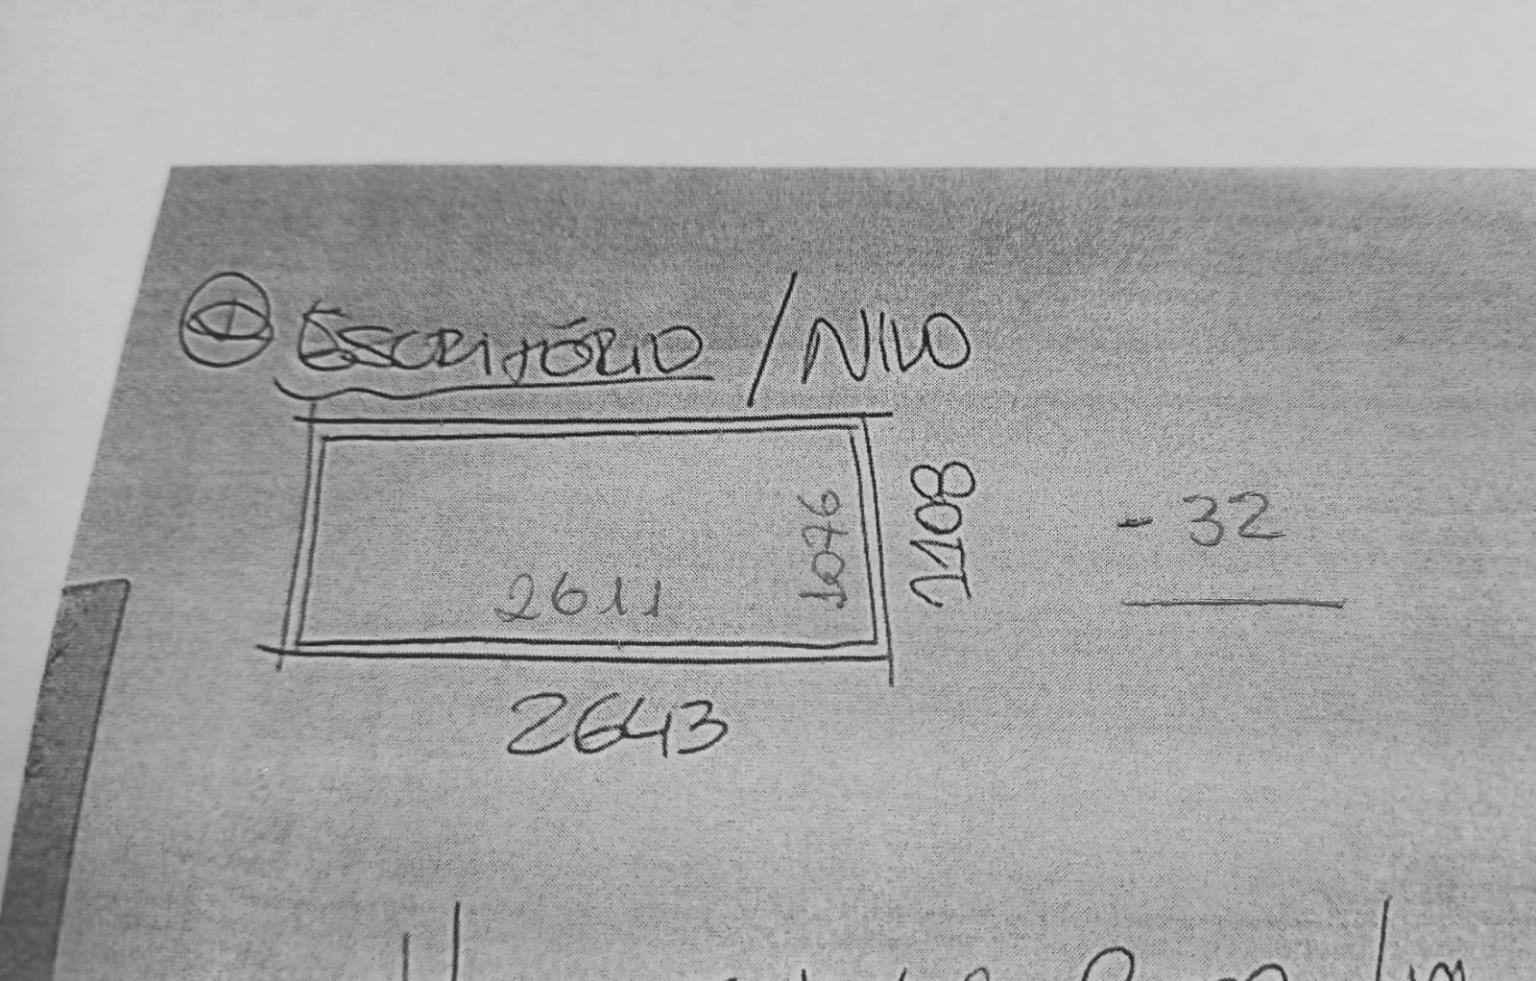 ESCRITÓRIO / NILO
1076
1108
- 32
2611
2643